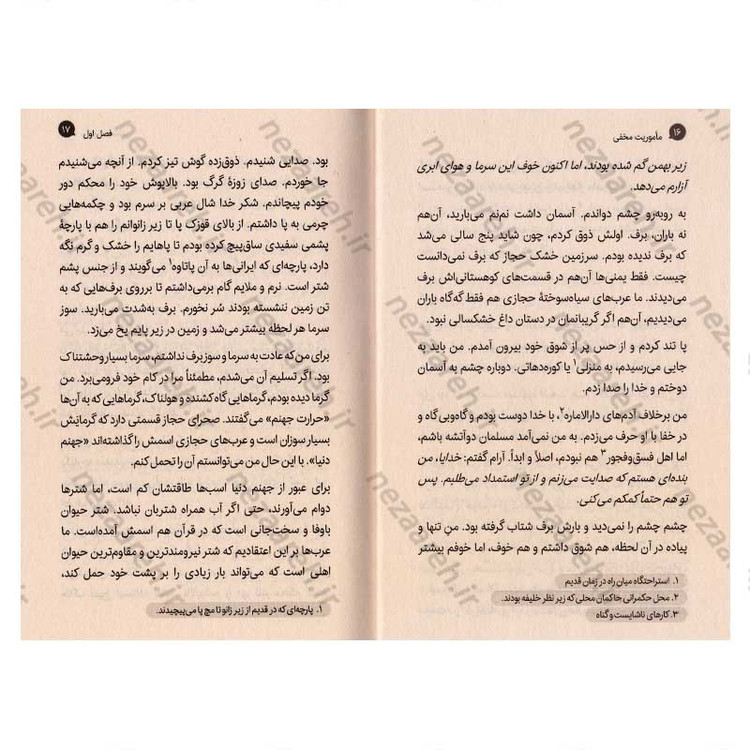 ۱۶ مأموریت مخفی
زیر بهمن گم شده بودند، اما اکنون خوف این سرما و هوای ابری
آزارم می‌دهد.
به روبه‌رو چشم دواندم. آسمان داشت نم‌نم می‌بارید، آن‌هم
نه باران، برف. اولش ذوق کردم، چون شاید پنج سالی می‌شد
که برف ندیده بودم. سرزمین خشک حجاز که برف نمی‌دانست
چیست. فقط یمنی‌ها آن‌هم در قسمت‌های کوهستانی‌اش برف
می‌دیدند. ما عرب‌های سیاه‌سوختهٔ حجازی هم فقط گه‌گاه باران
می‌دیدیم، آن‌هم اگر گریبانمان در دستان داغ خشکسالی نبود.
پا تند کردم و از حس پر از شوق خود بیرون آمدم. من باید به
جایی می‌رسیدم، به منزلی۱ یا کوره‌دهاتی. دوباره چشم به آسمان
دوختم و خدا را صدا زدم.
من برخلاف آدم‌های دارالاماره۲، با خدا دوست بودم و گاه‌وبی‌گاه و
در خفا با او حرف می‌زدم. به من نمی‌آمد مسلمان دوآتشه باشم،
اما اهل فسق‌وفجور۳ هم نبودم، اصلاً و ابداً. آرام گفتم: خدایا، من
بنده‌ای هستم که صدایت می‌زنم و از تو استمداد می‌طلبم. پس
تو هم حتماً کمکم می‌کنی.
چشم چشم را نمی‌دید و بارش برف شتاب گرفته بود. منِ تنها و
پیاده در آن لحظه، هم شوق داشتم و هم خوف، اما خوفم بیشتر
۱. استراحتگاه میان راه در زمان قدیم
۲. محل حکمرانی حاکمان محلی که زیر نظر خلیفه بودند.
۳. کارهای ناشایست و گناه
فصل اول ۱۷
بود. صدایی شنیدم. ذوق‌زده گوش تیز کردم. از آنچه می‌شنیدم
جا خوردم. صدای زوزهٔ گرگ بود. بالاپوش خود را محکم دور
خودم پیچاندم. شکر خدا شال عربی بر سرم بود و چکمه‌هایی
چرمی به پا داشتم. از بالای قوزک پا تا زیر زانوانم را هم با پارچهٔ
پشمی سفیدی ساق‌پیچ کرده بودم تا پاهایم را خشک و گرم نگه
دارد، پارچه‌ای که ایرانی‌ها به آن پاتاوه۱ می‌گویند و از جنس پشم
شتر است. نرم و ملایم گام برمی‌داشتم تا برروی برف‌هایی که به
تن زمین ننشسته بودند سُر نخورم. برف به‌شدت می‌بارید. سوز
سرما هر لحظه بیشتر می‌شد و زمین در زیر پایم یخ می‌زد.
برای من که عادت به سرما و سوز برف نداشتم، سرما بسیار وحشتناک
بود. اگر تسلیم آن می‌شدم، مطمئناً مرا در کام خود فرومی‌برد. من
گرما دیده بودم، گرماهایی گاه کشنده و هولناک، گرماهایی که به آن‌ها
«حرارت جهنم» می‌گفتند. صحرای حجاز قسمتی دارد که گرمایش
بسیار سوزان است و عرب‌های حجازی اسمش را گذاشته‌اند «جهنم
دنیا». با این حال من می‌توانستم آن را تحمل کنم.
برای عبور از جهنم دنیا اسب‌ها طاقتشان کم است، اما شترها
دوام می‌آورند، حتی اگر آب همراه شتربان نباشد. شتر حیوان
باوفا و سخت‌جانی است که در قرآن هم اسمش آمده‌است. ما
عرب‌ها بر این اعتقادیم که شتر نیرومندترین و مقاوم‌ترین حیوان
اهلی است که می‌تواند بار زیادی را بر پشت خود حمل کند،
۱. پارچه‌ای که در قدیم از زیر زانو تا مچ پا می‌پیچیدند.
nezaareh.ir